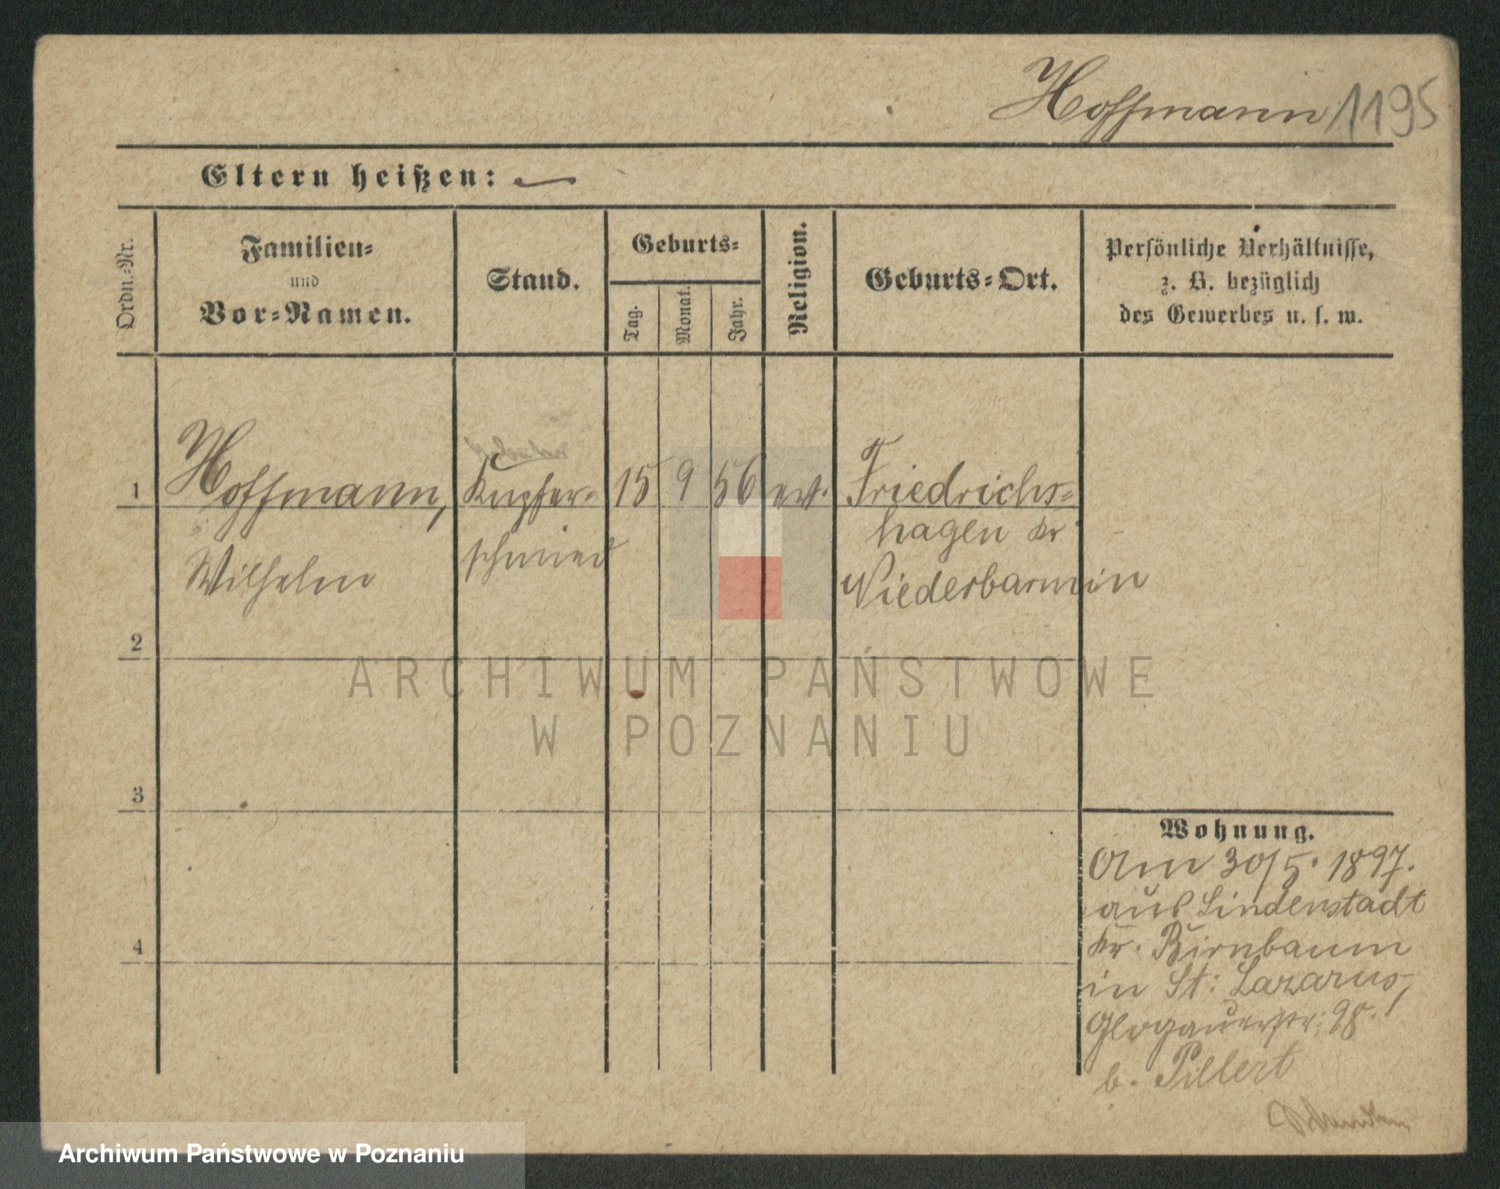 Hoffmann 1195
Eltern heißen: —
Ordn.-Nr.
Familien-
und
Vor-Namen.
Stand.
Geburts-
Tag.
Monat.
Jahr.
Religion.
Geburts-Ort.
Persönliche Verhältnisse,
z. B. bezüglich
des Gewerbes u. s. w.
1
Hoffmann,
Wilhelm
Kupfer-
schmied
15
9
56
ev.
Friedrichs-
hagen Kr
Niederbarnim
2
3
4
Wohnung.
Am 30/5. 1897.
aus Lindenstadt
Kr. Birnbaum
in St: Lazarus,
Glogauerstr: 98.
b. Pillert
ARCHIWUM PAŃSTWOWE
W POZNANIU
Archiwum Państwowe w Poznaniu